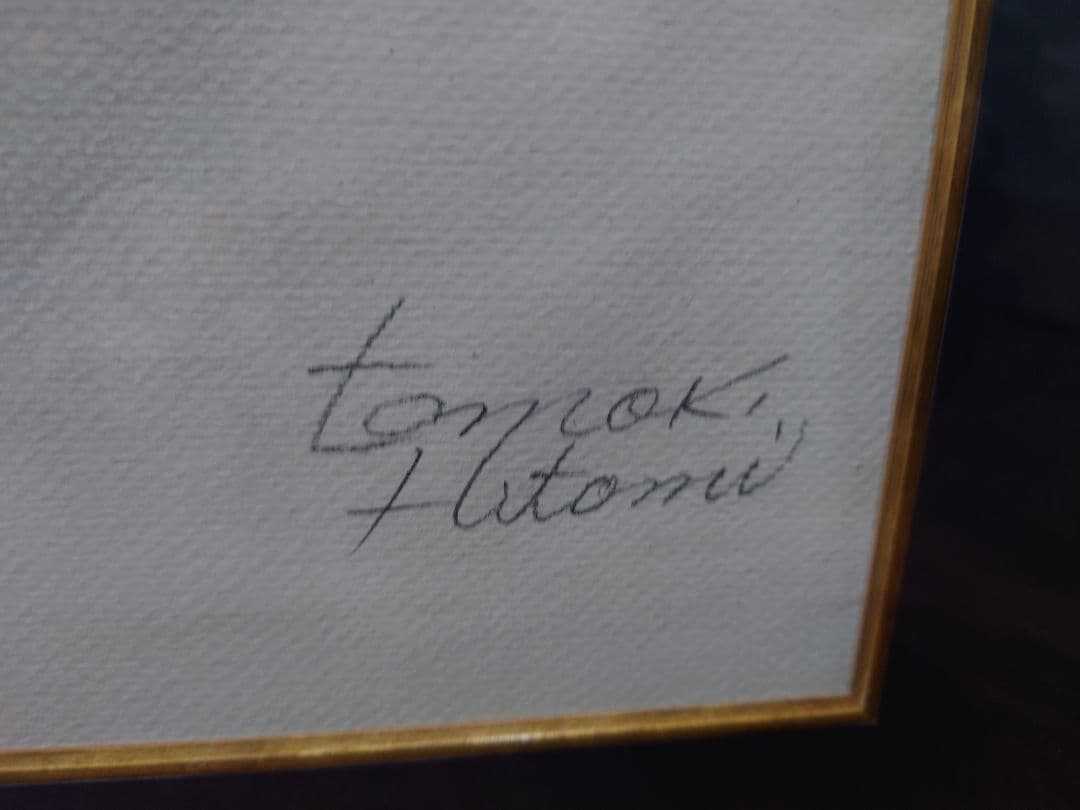 tomoki
Hitomi